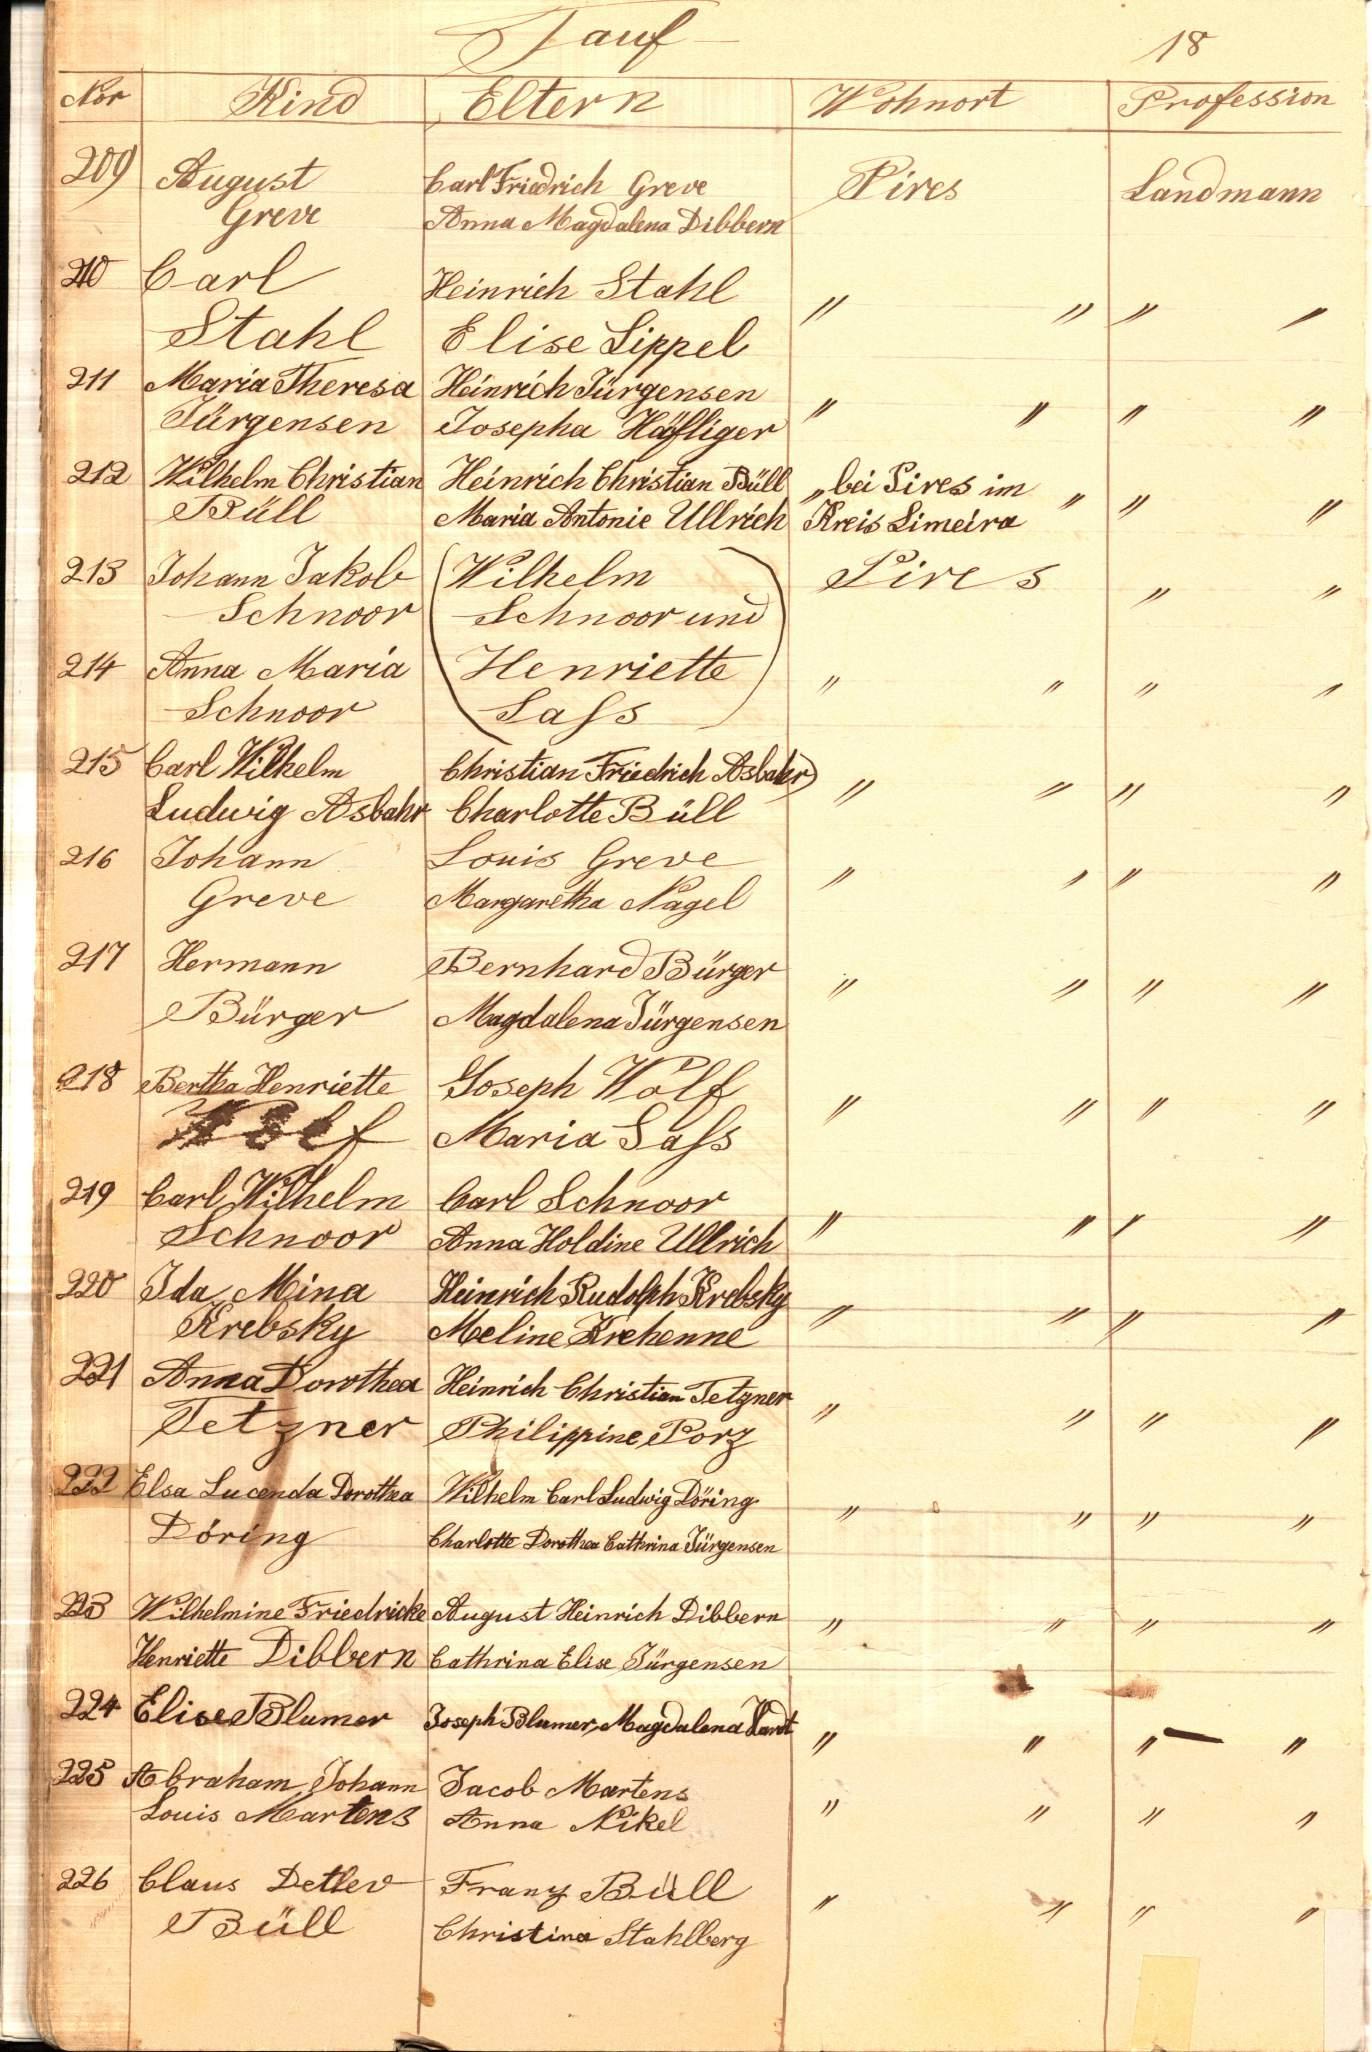 Tauf 18
Nor Kind Eltern Wohnort Profession
209 August Carl Friedrich Greve Pires Landmann
Greve Anna Magdalena Dibbern
210 Carl Heinrich Stahl " " " "
Stahl Elise Lippel
211 Maria Theresa Heinrich Jürgensen " " " "
Jürgensen Josepha Häfliger
212 Wilhelm Christian Heinrich Christian Büll " bei Pires im " " "
Büll Maria Antonie Ullrich Kreis Limeira
213 Johann Jakob (Wilhelm Pires " "
Schnoor Schnoor und
214 Anna Maria Henriette " " " "
Schnoor Saſs)
215 Carl Wilhelm Christian Friedrich Asbahr) " " " "
Ludwig Asbahr Charlotte Büll
216 Johann Louis Greve " " " "
Greve Margaretha Nagel
217 Hermann Bernhard Bürger " " " "
Bürger Magdalena Jürgensen
218 Bertha Henriette Joseph Wolf " " " "
Wolf Maria Saſs
219 Carl Wilhelm Carl Schnoor " " " "
Schnoor Anna Holdine Ullrich
220 Ida Mina Heinrich Rudolph Krebsky " " " "
Krebsky Meline Krehenne
221 Anna Dorothea Heinrich Christian Tetzner " " " "
Tetzner Philippine Porz
222 Elsa Lucenda Dorothea Wilhelm Carl Ludwig Döring " " " "
Döring Charlotte Dorothea Cathrina Jürgensen
223 Wilhelmine Friedricke August Heinrich Dibbern " " " "
Henriette Dibbern Cathrina Elise Jürgensen
224 Elise Blumer Joseph Blumer, Magdalena " " " — "
225 Abraham Johann Jacob Martens " " " "
Louis Martens Anna Nikel
226 Claus Detlev Franz Büll " " " "
Büll Christina Stahlberg